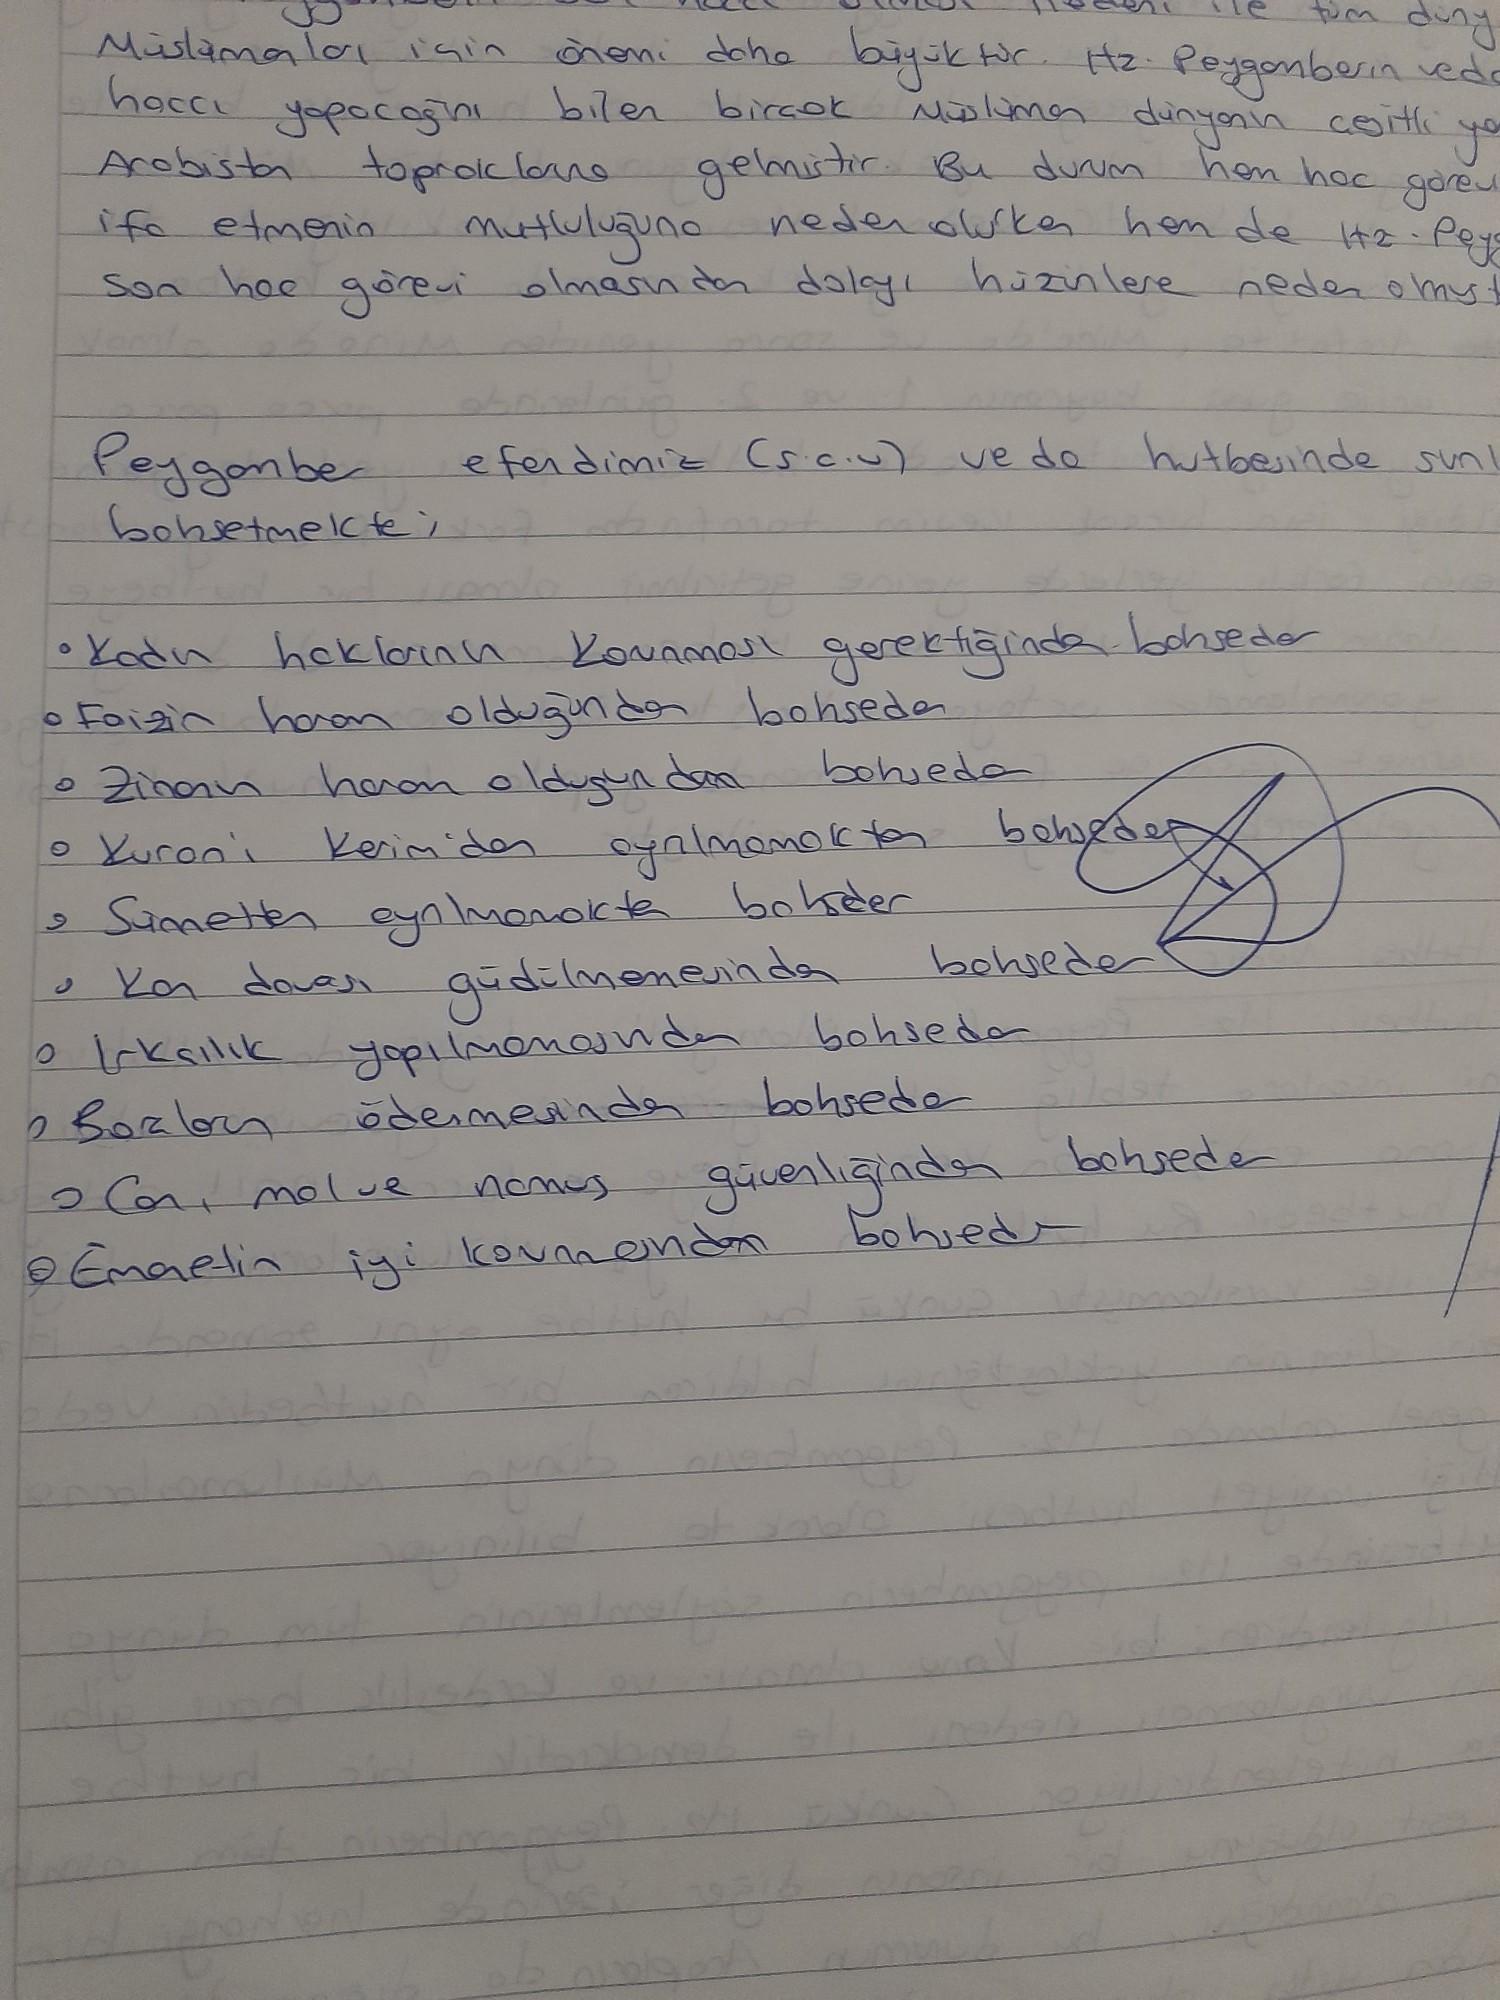 ile tüm düny
Müslümanlar için önemi daha büyüktür. Hz. Peygamberin veda
haccı yapacağını bilen birçok Müslüman dünyanın çeşitli
Arabistan topraklarına gelmiştir. Bu durum hem hac görev
ifa etmenin mutluluğuna neden olurken hem de Hz. Peyg
son hac görevi olmasından dolayı hüzünlere neden olmuşt
Peygamber efendimiz (s.a.v) veda hutbesinde şunl
bahsetmekte;
• Kadın haklarının korunması gerektiğinden bahseder
• Faizin haram olduğundan bahseder
• Zinanın haram olduğundan bahseder
• Kuranı Kerim'den ayrılmamaktan bahseder
• Sünnetten ayrılmamaktan bahseder
• Kan davası güdülmemesinden bahseder
• Irkçılık yapılmamasından bahseder
• Borzların ödenmesinden bahseder
• Can, mal ve namus güvenliğinden bahseder
• Emanetin iyi korunmasından bahseder